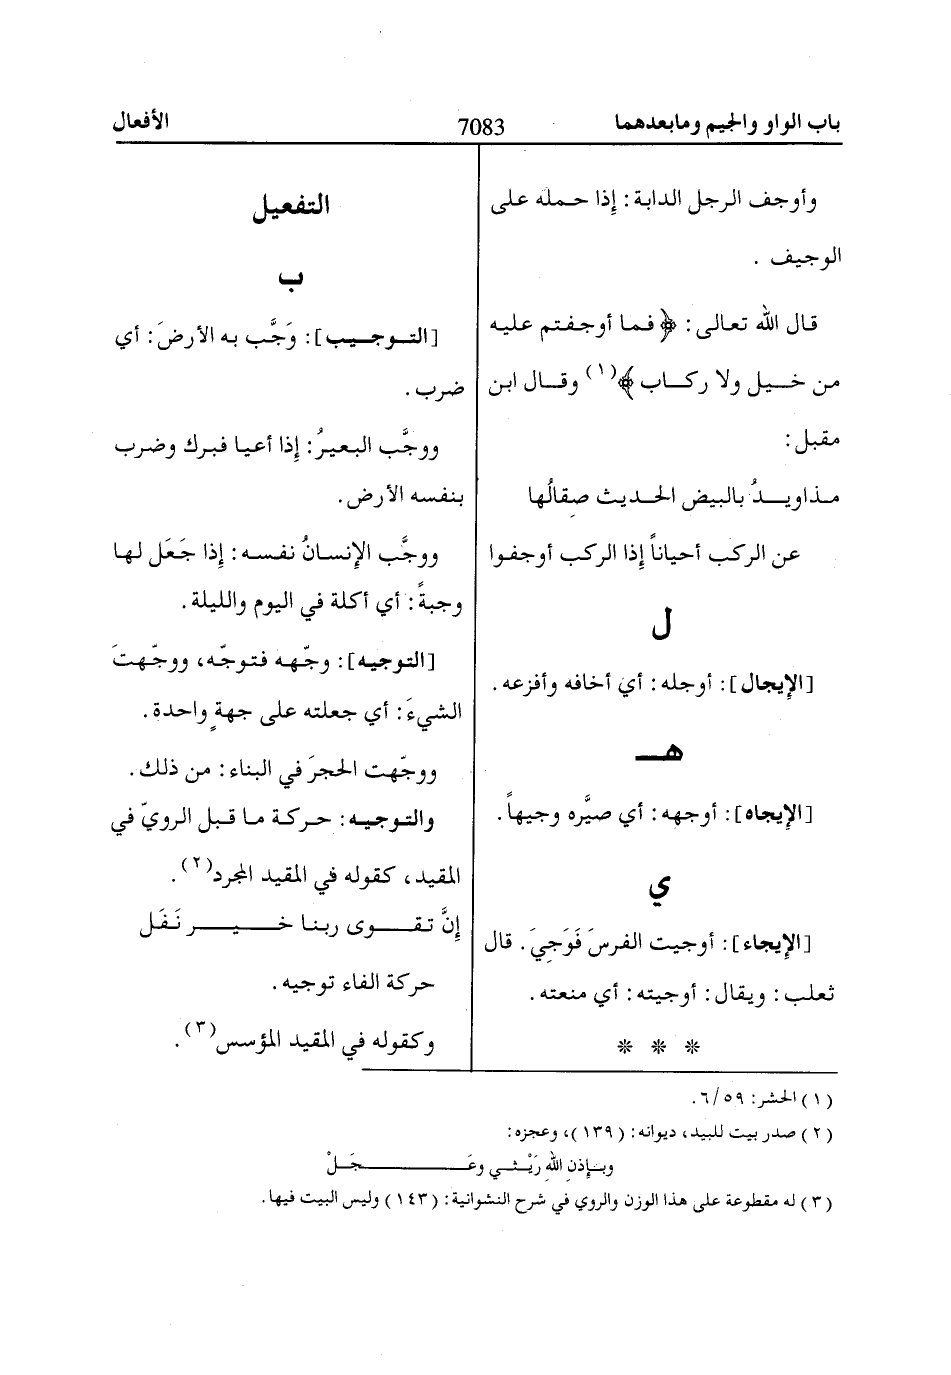 باب الواو والجيم ومابعدهما 7083 الأفعال
وأوجف الرجل الدابة: إذا حمله على
الوجيف .
قال الله تعالى: ﴿ فما أوجفتم عليه
من خيل ولا ركاب ﴾(١) وقال ابن
مقبل:
مذاويدُ بالبيض الحديث صِقالُها
عن الركب أحياناً إذا الركب أوجفوا
ل
[الإيجال]: أوجله: أي أخافه وأفزعه.
هـ
[الإيجاه]: أوجهه: أي صيَّره وجيهاً.
ي
[الإيجاء]: أوجيت الفرسَ فَوَجِيَ. قال
ثعلب: ويقال: أوجيته: أي منعته.
* * *
التفعيل
ب
[التوجيب]: وَجَّب به الأرضَ: أي
ضرب.
ووجَّب البعيرُ: إذا أعيا فبرك وضرب
بنفسه الأرض.
ووجَّب الإنسانُ نفسه: إذا جَعَل لها
وجبةً: أي أكلة في اليوم والليلة.
[التوجيه]: وجّهه فتوجّه، ووجّهتَ
الشيءَ: أي جعلته على جهةٍ واحدة.
ووجّهت الحجرَ في البناء: من ذلك.
والتوجيه: حركة ما قبل الرويّ في
المقيد، كقوله في المقيد المجرد(٢).
إنَّ تقوى ربنا خير نَفَل
حركة الفاء توجيه.
وكقوله في المقيد المؤسس(٣).
(١) الحشر: ٥٩/ ٦.
(٢) صدر بيت للبيد، ديوانه: (١٣٩)، وعجزه:
وبإذنِ اللهِ رَيْثي وعَجَلْ
(٣) له مقطوعة على هذا الوزن والروي في شرح النشوانية: (١٤٣) وليس البيت فيها.